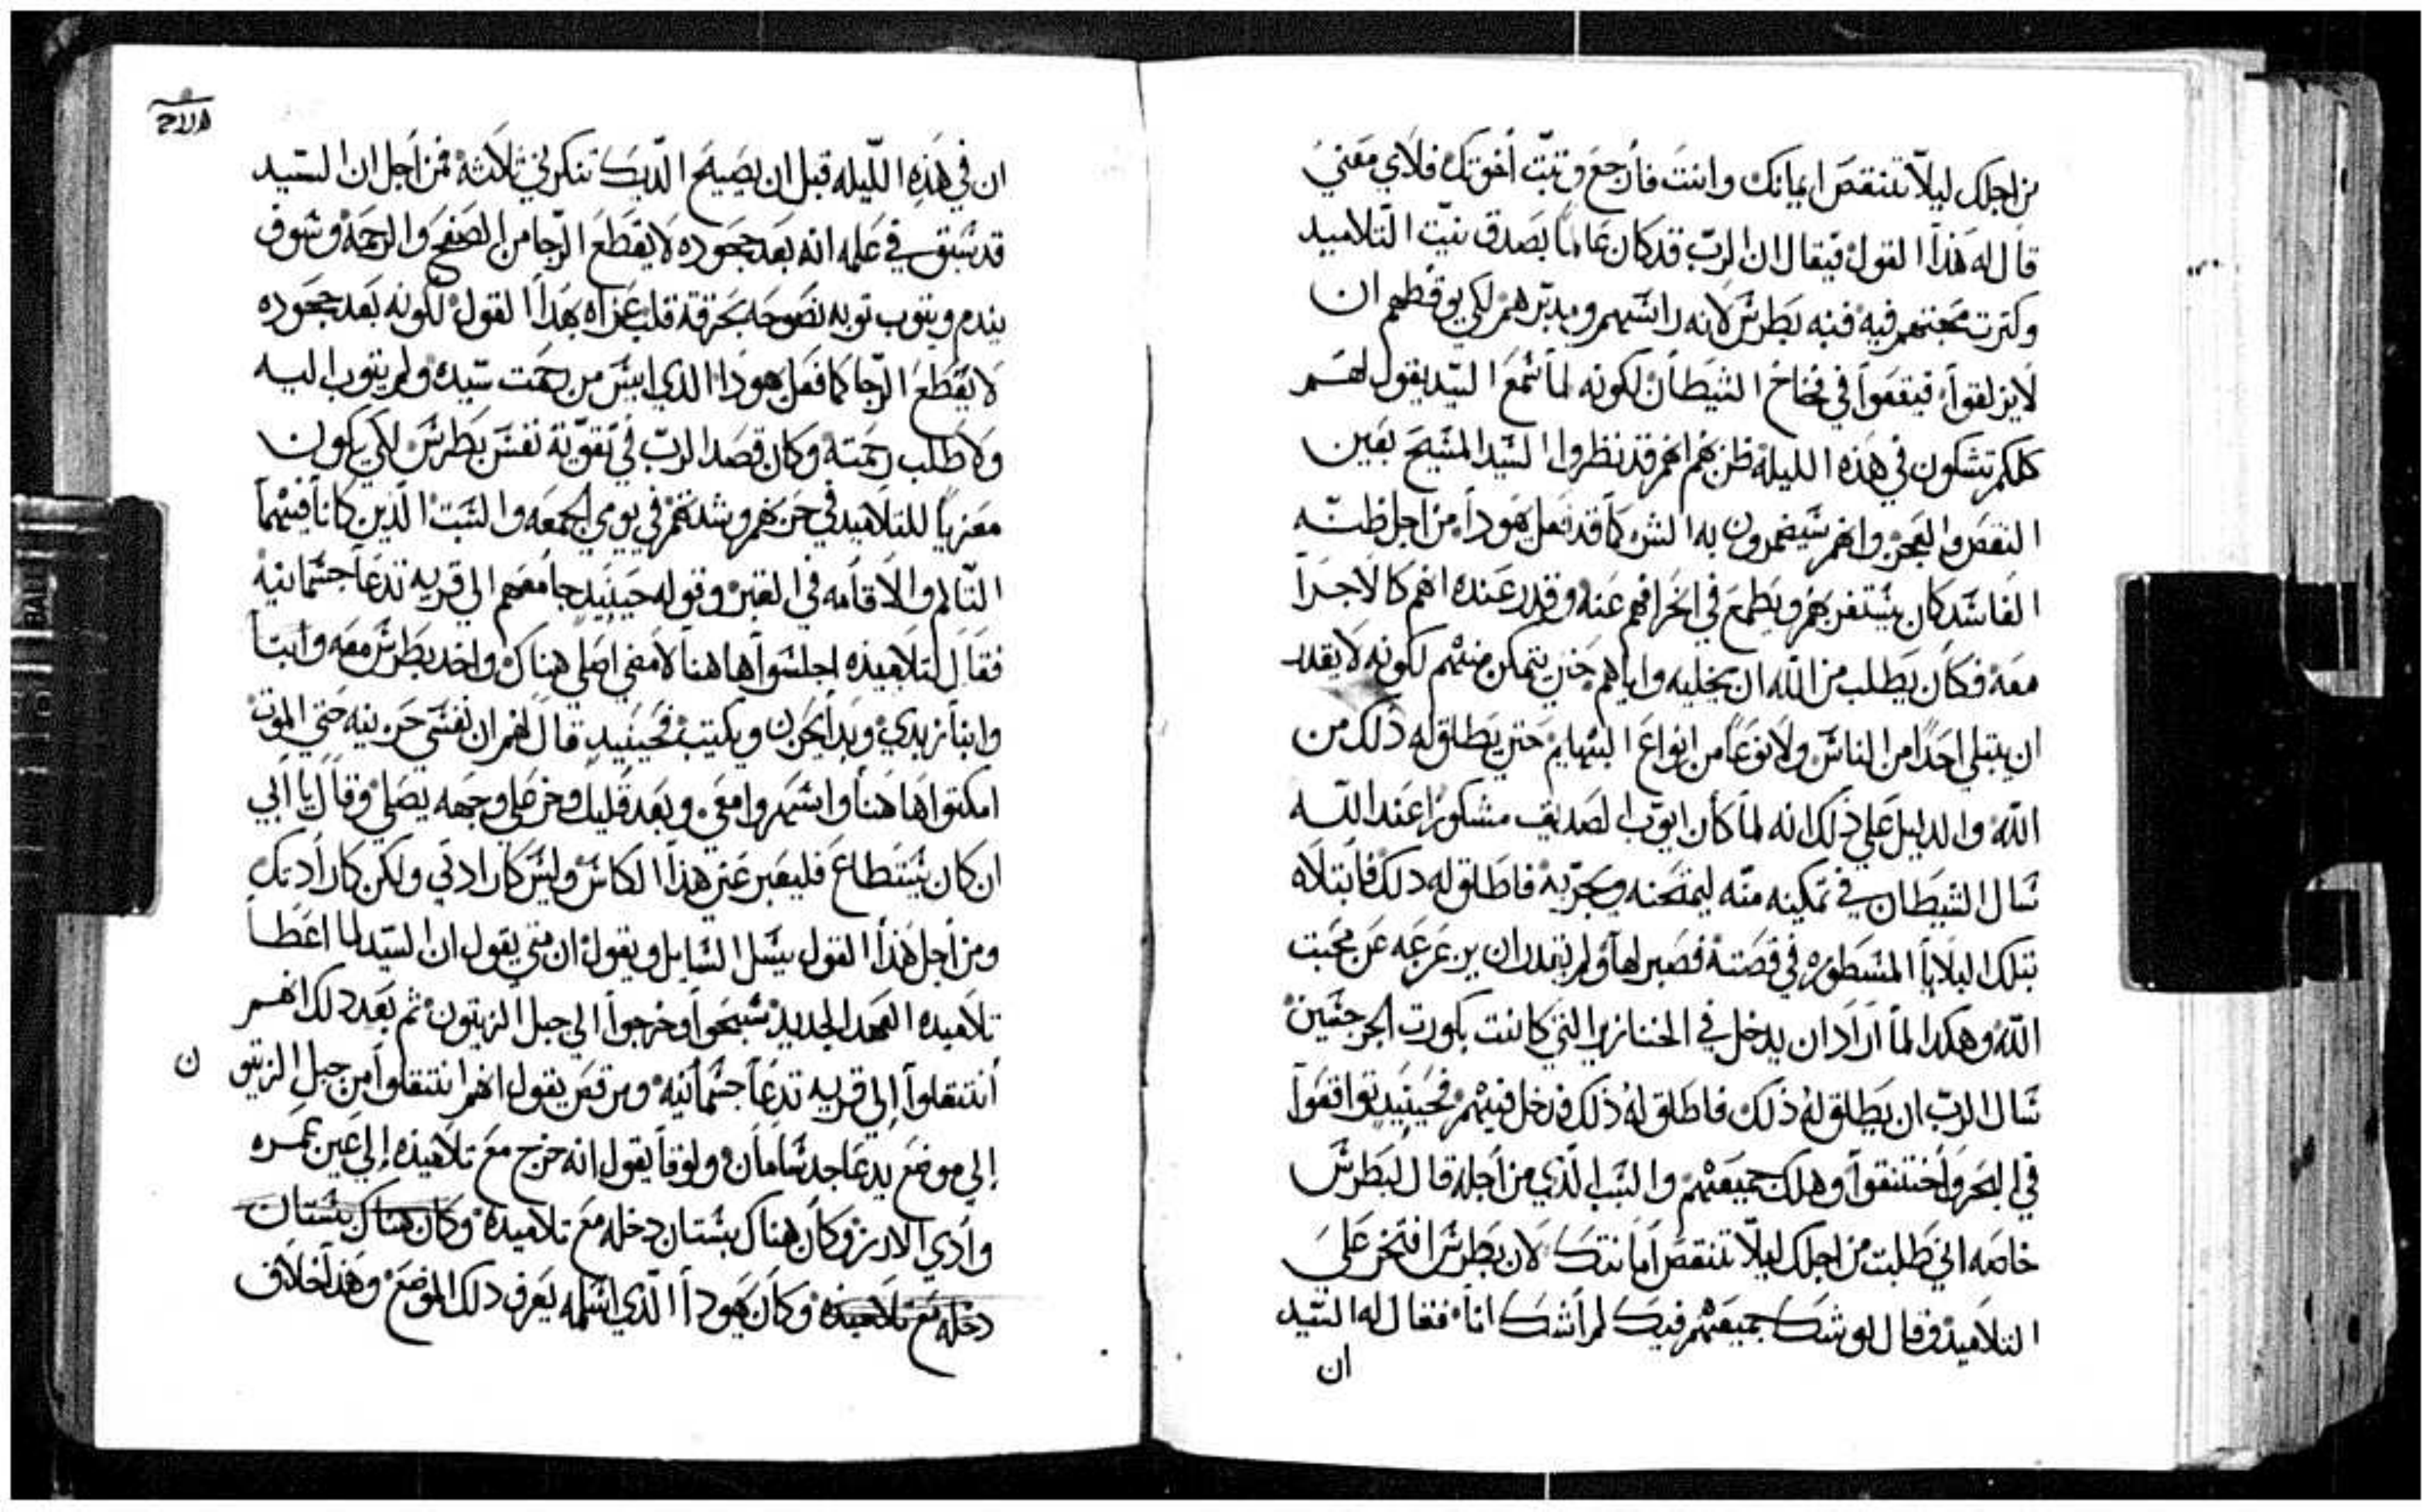 من اجلك ليلّا تنتقص ايمانك وانت فأرجع وتبّت أخوتك فلاي معني
قال له هذا القول فيقال ان الرب قد كان عالماً بصدق نيّت التلاميد
وكترت محبتهم فيه فنبه بطرس لانه رائسهم ومدبّرهم لكي يوقظهم ان
لا يزلقواْ فيقعواْ في فخاخ الشيطان لكونه لما سمع السيّد يقول لهم
كلكم تشكون في هذه الليلة ظن بهم انهم قد نظروا السيد المسيح بعين
النقص والعجز وانهم سيضمرون به الشر كما قد فعل يهودا من اجل ظنّه
الفاسد كان يستفز بهم ويطمع في انحرافهم عنه وقدر عنده انهم كالاجرا
معه فكان يطلب من الله ان يخليه واياهم حتي يتمكن منهم لكونه لا يقدر
ان يبتلي احداً من الناس ولا نوعاً من انواع البهايم حتي يطلق له ذلك من
الله والدليل علي ذلك انه لما كان ايوب الصديق مشكوراً عند الله
سال الشيطان في تمكينه منّه ليمتحنه ويجرّبه فاطلق له دلك فأبتلاه
بتلك البلايا المسطوره في قصته فصبر لها ولم يقدر ان يزعزعه عن محبت
الله وهكدا لما أراد ان يدخل في الخنازير التي كانت بكورت الجرجسين
سال الرب ان يطلق له ذلك فاطلق له ذلك فدخل فيهم فحينيد تواقعوا
في البحر واختنقوا وهلك جميعهم والسبب الذي من أجله قال لبطرس
خاصه اني طلبت من اجلك ليلّا تنتقص أمانتك لان بطرس افتخر علي
التلاميد وقال لو شك جميعهم فيك لم أشك انا فقال له السيد
ان
ان في هذه الليله قبل ان يصيح الديك تنكرني ثلاثة فمن أجل ان السيد
قد سبق في علمه انه بعد جحوده لا يقطع الرجا من الصفح والرحمة وسوف
يندم ويتوب توبه نصوحه بحرقة قلب عزاه بهدا القول لكونه بعد جحوده
لا يقطع الرجا كما فعل يهودا الذي ايس من رحمت سيده ولم يتوب اليه
ولا طلب رحمته وكان قصد الرب في تقوية نفس بطرس لكي يكون
معزياً للتلاميد في حزنهم وشدتهم في يومي الجمعه والسبت الذين كانا فيهما
التالم والاقامه في القبر وقوله حينيد جا معهم الي قريه تدعا جسمانية
فقال لتلاميذه اجلسوا هاهنا لامضي اصلي هناك واخد بطرس معه وابنا
وابنا زبدي وبدأ يحزن ويكتيب فحينيد قال لهم ان نفسي حزينه حتي الموت
امكتوا هاهنا واسهروا معي وبعد قليل وخر علي وجهه يصلي وقال يا ابي
ان كان يستطاع فليعبر عني هذا الكاس وليس كارادتي ولكن كارادتك
ومن أجل هذا القول يسل السايل ويقول ان متي يقول ان السيد لما اعطا
تلاميده العهد الجديد سبحوا وخرجوا الي جبل الزيتون ثم بعد دلك انهم
أنتقلوا إلي قريه تدعا جسمانيه ومرقص يقول انهم انتقلوا من جبل الزيتو ن
إلي موضع يدعا جدسامان ولوقا يقول انه خرج مع تلاميذه إلي عين عمره
وادي الارز وكان هناك بستان دخله مع تلاميده وكان هناك بستان
دخله مع تلاميذه وكان يهودا الذي اسلمه يعرف دلك الموضع وهذا خلاف